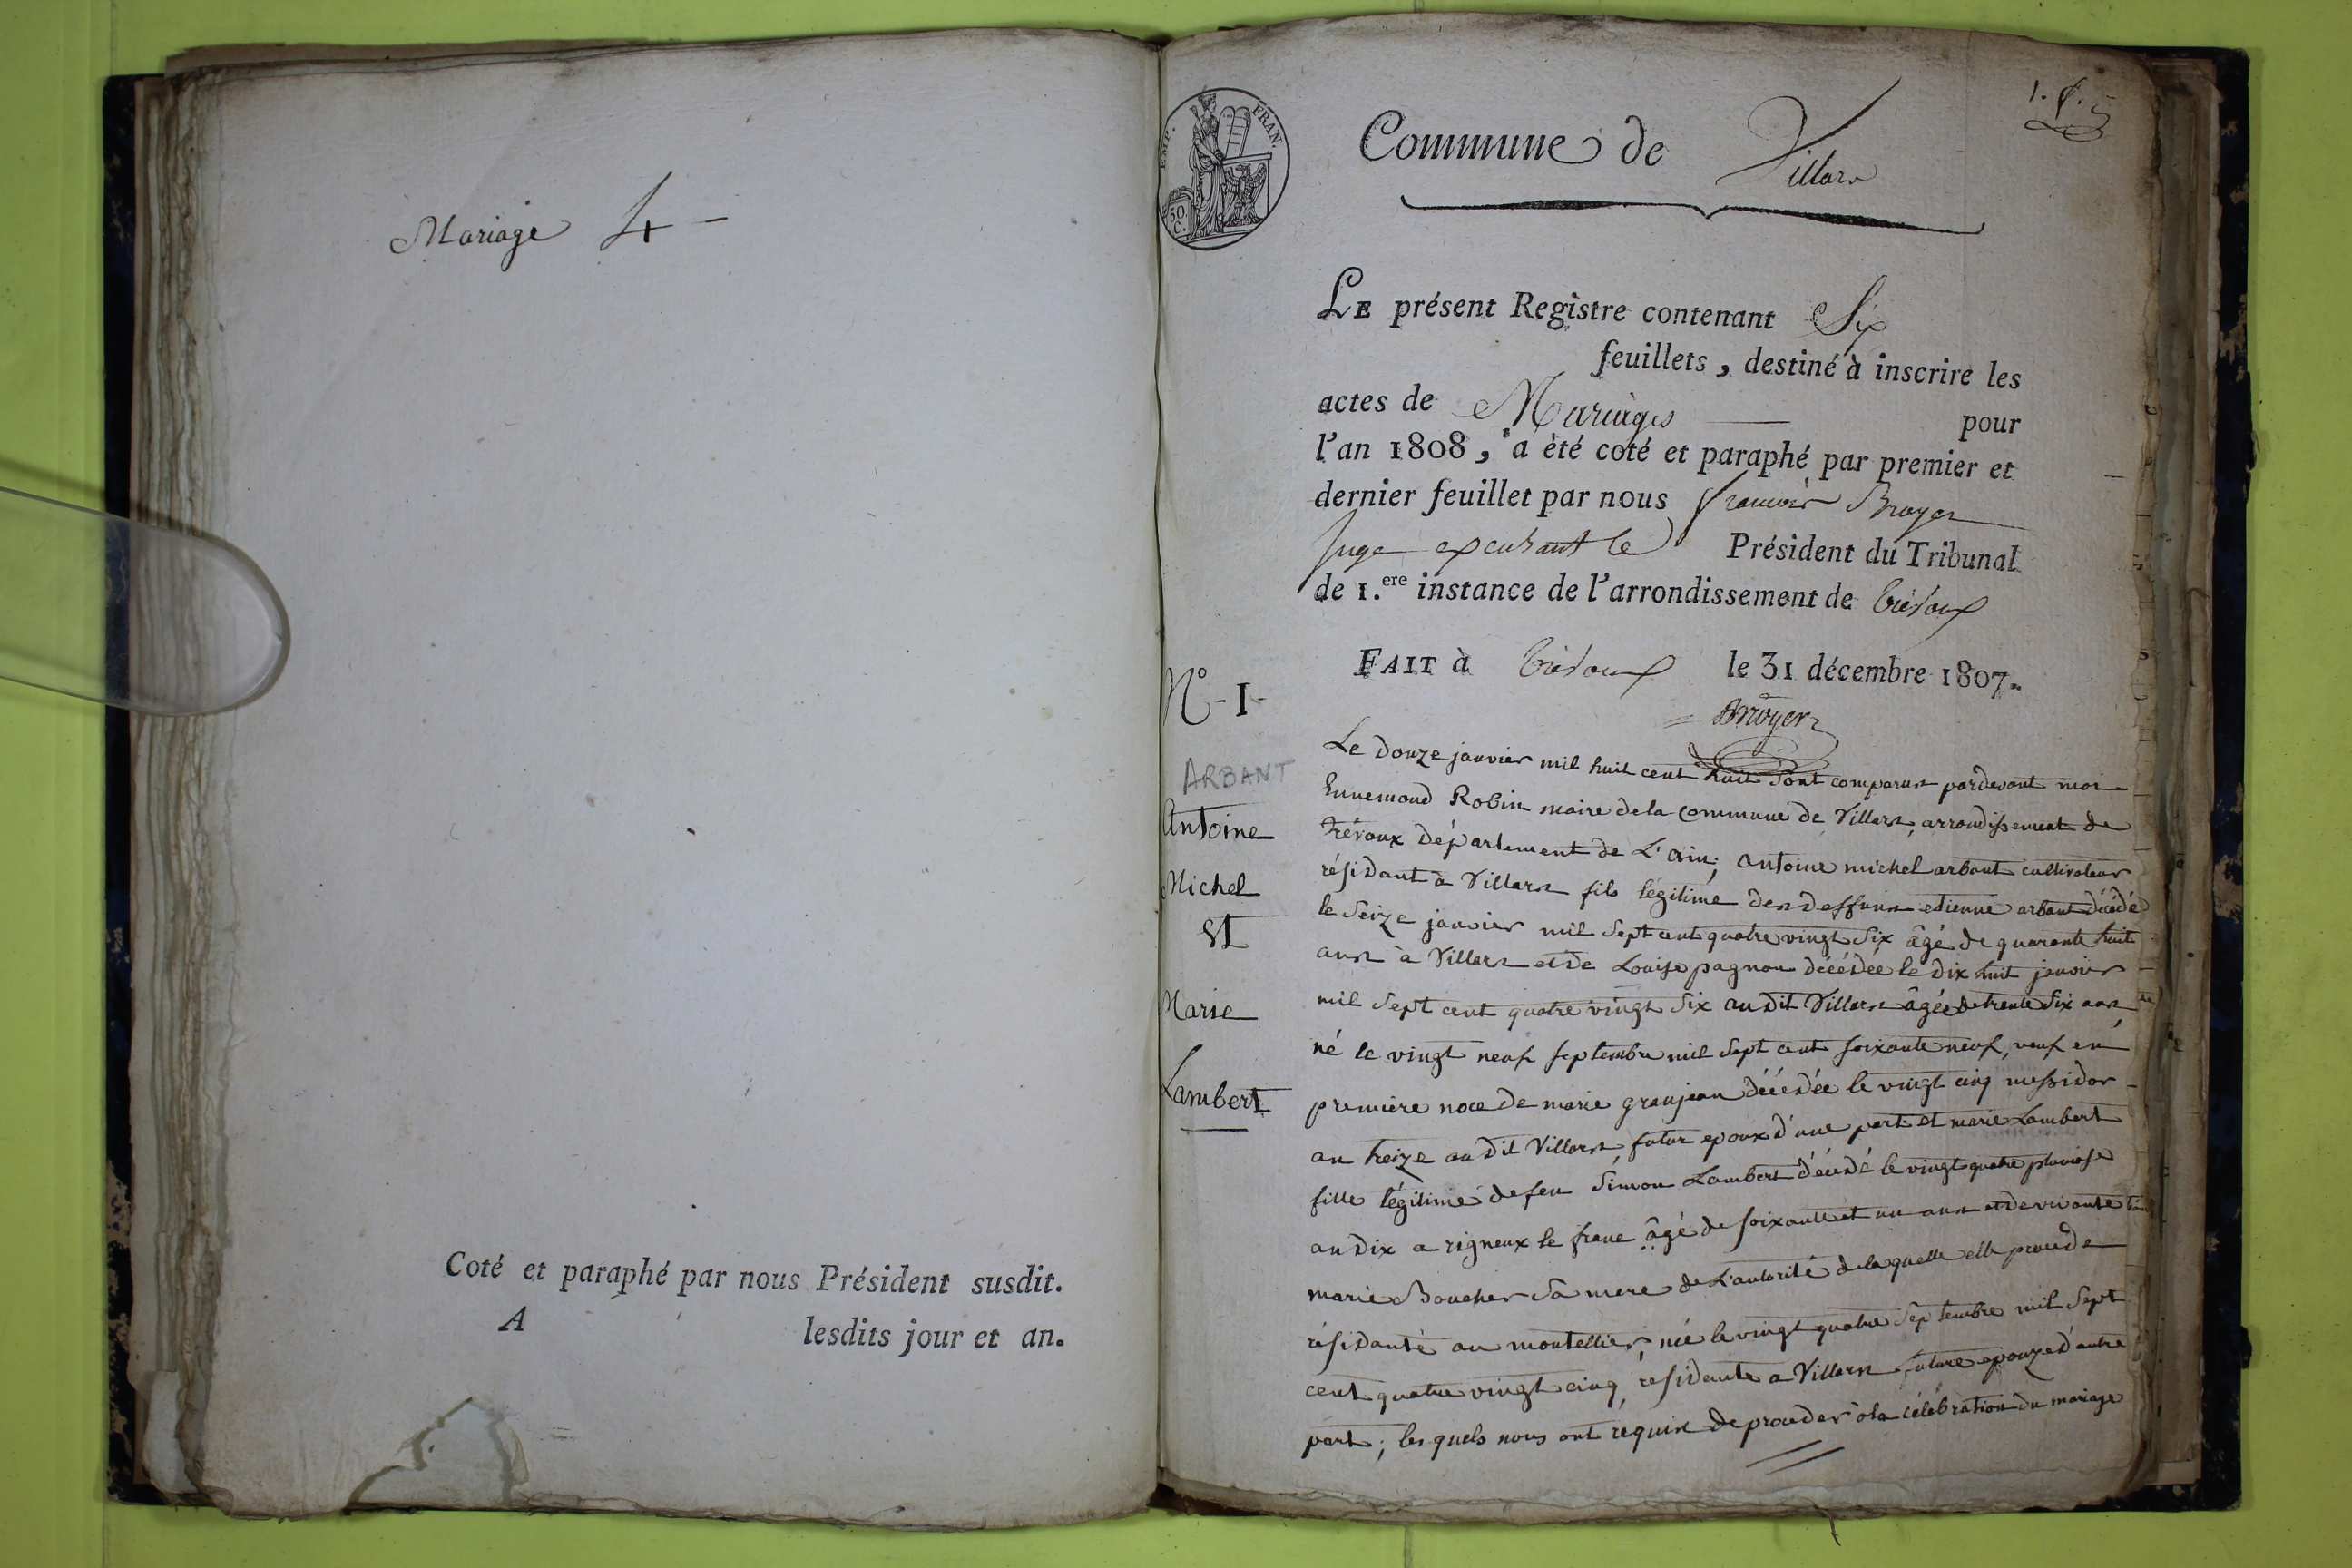 Mariage 4 –
Coté et paraphé par nous Président susdit.
A lesdits jour et an.
EMP. FRAN.
50.
C.
Commune de Villars
Le présent Registre contenant Six
feuillets, destiné à inscrire les
actes de Mariages — pour
l'an 1808, a été coté et paraphé par premier et
dernier feuillet par nous francois Broyer
Juge excusant le Président du Tribunal
de 1.ere instance de l'arrondissement de Trévoux
FAIT à Trévoux le 31 décembre 1807.
Broyer
N° - I -
ARBANT
Antoine
Michel
et
Marie
Lambert
Le douze janvier mil huit cent huit sont comparus pardevant moi
Ennemond Robin maire de la commune de Villars, arrondissement de
trévoux département de L'ain; antoine michel arbant cultivateur
résidant à Villars fils légitime des deffuns etienne arbant décédé
le seize janvier mil sept cent quatre vingt six âgé de quarante huit
ans à Villars et de Louise pagnon décédée le dix huit janvier
mil sept cent quatre vingt six audit Villars âgée de trente six ans
né le vingt neuf septembre mil sept cent soixante neuf, veuf en
première noce de marie granjean décédée le vingt cinq messidor
an treize audit Villars, futur epoux d'une part et marie Lambert
fille légitime de feu Simon Lambert décédé le vingt quatre pluviose
an dix a rigneux le franc âgé de soixante et un ans et de vivante
marie Boucher sa mere de L'autorité de laquelle elle procede
résidante au montellier, née le vingt quatre septembre mil sept
cent quatre vingt cinq, residante a Villars, future epouze d'autre
part; lesquels nous ont requis de proceder à la célébration du mariage